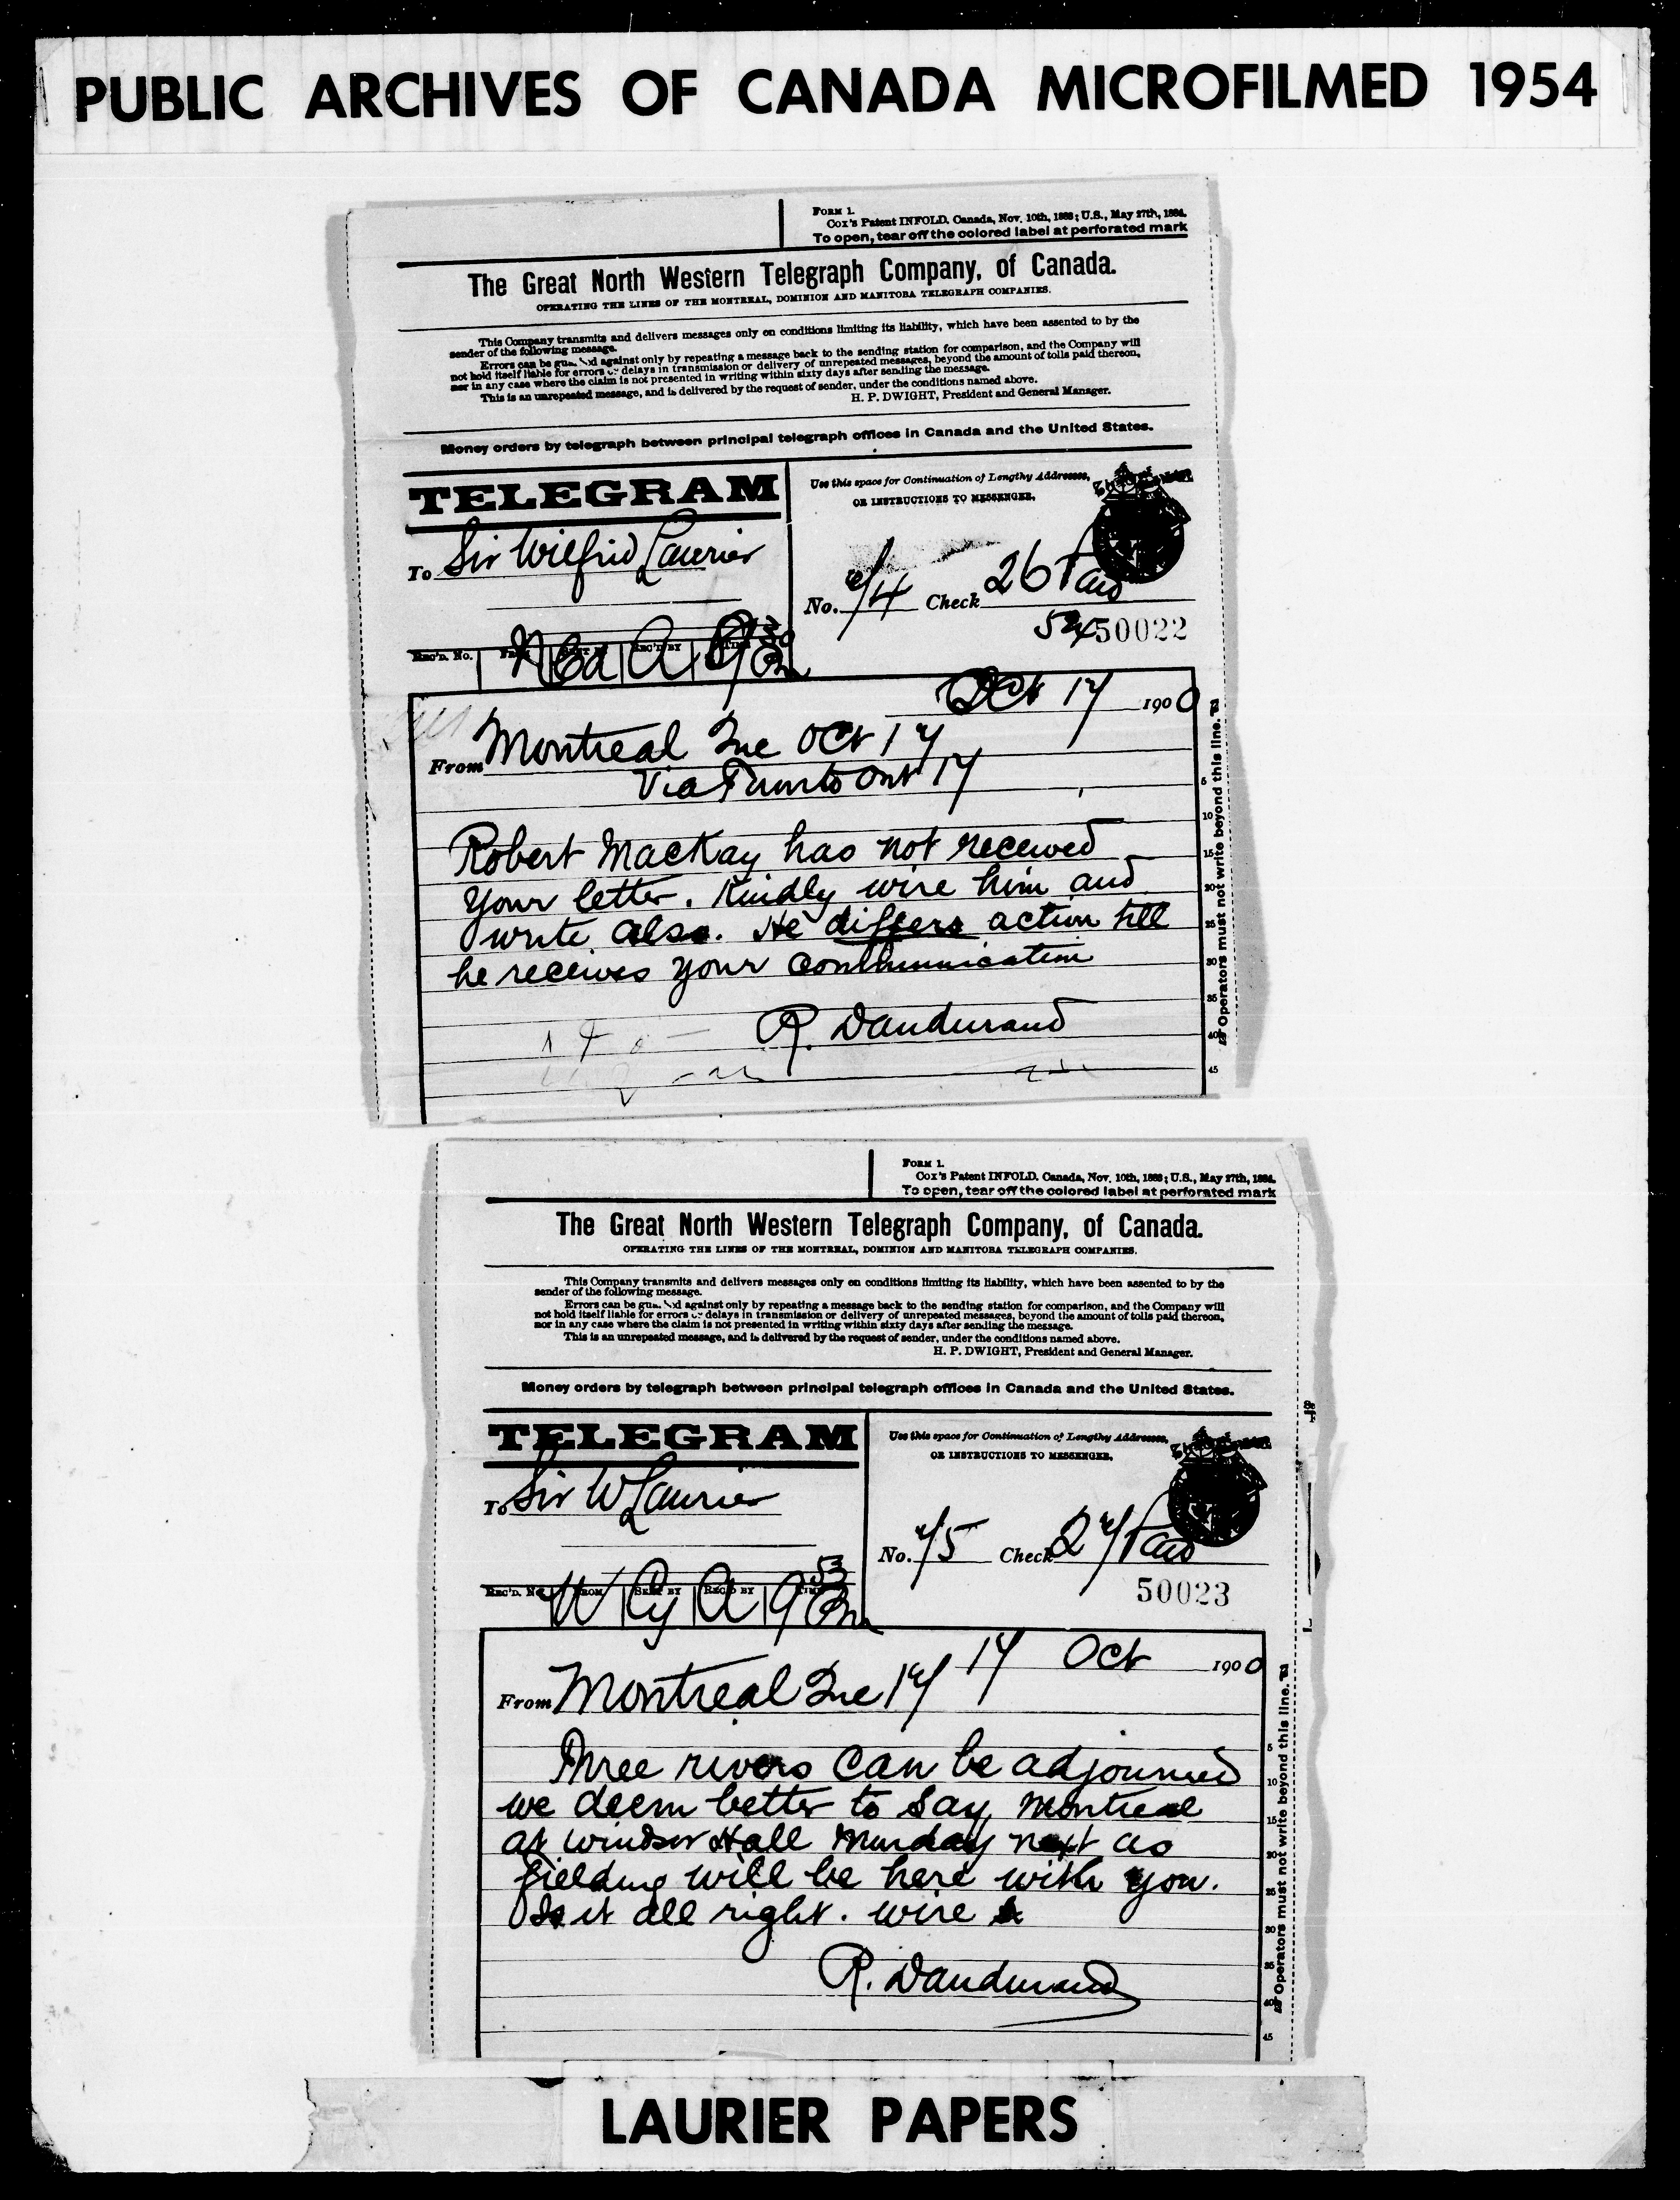 PUBLIC ARCHIVES OF CANADA MICROFILMED 1954
FORM 1.
Cox's Patent INFOLD. Canada, Nov. 10th, 1883; U.S., May 27th, 1884.
To open, tear off the colored label at perforated mark
The Great North Western Telegraph Company, of Canada.
OPERATING THE LINES OF THE MONTREAL, DOMINION AND MANITOBA TELEGRAPH COMPANIES.
This Company transmits and delivers messages only on conditions limiting its liability, which have been assented to by the
sender of the following message.
Errors can be against only by repeating a message back to the sending station for comparison, and the Company will
not hold itself liable for errors or delays in transmission or delivery of unrepeated messages, beyond the amount of tolls paid thereon,
nor in any case where the claim is not presented in writing within sixty days after sending the message.
This is an unrepeated message, and is delivered by the request of sender, under the conditions named above.
H. P. DWIGHT, President and General Manager.
Money orders by telegraph between principal telegraph offices in Canada and the United States.
TELEGRAM
Use this space for Continuation of Lengthy Addresses,
OR INSTRUCTIONS TO MESSENGER.
To Sir Wilfrid Laurier
No. 74 Check 26 Paid
50022
REC'D. No. REC'D BY
Oct 17 1900
From Montreal Que Oct 17
Via Toronto Ont 17
Robert Mackay has not received
your letter. Kindly wire him and
write also. He differs action till
he receives your communication
R. Dandurand
Operators must not write beyond this line.
5
10
15
20
25
30
35
40
45
FORM 1.
Cox's Patent INFOLD. Canada, Nov. 10th, 1883; U.S., May 27th, 1884.
To open, tear off the colored label at perforated mark
The Great North Western Telegraph Company, of Canada.
OPERATING THE LINES OF THE MONTREAL, DOMINION AND MANITOBA TELEGRAPH COMPANIES.
This Company transmits and delivers messages only on conditions limiting its liability, which have been assented to by the
sender of the following message.
Errors can be against only by repeating a message back to the sending station for comparison, and the Company will
not hold itself liable for errors or delays in transmission or delivery of unrepeated messages, beyond the amount of tolls paid thereon,
nor in any case where the claim is not presented in writing within sixty days after sending the message.
This is an unrepeated message, and is delivered by the request of sender, under the conditions named above.
H. P. DWIGHT, President and General Manager.
Money orders by telegraph between principal telegraph offices in Canada and the United States.
TELEGRAM
Use this space for Continuation of Lengthy Addresses,
OR INSTRUCTIONS TO MESSENGER.
To Sir W Laurier
No. 75 Check 27 Paid
50023
REC'D. No. FROM SENT BY REC'D BY TIME
W Cy A 9 53 Pm
17 Oct 1900
From Montreal Que 17
Three rivers can be adjourned
we deem better to say Montreal
at Windsor Hall Munday next as
fielding will be here with you.
Is it all right. wire
R. Dandurand
Operators must not write beyond this line.
5
10
15
20
25
30
35
40
45
LAURIER PAPERS